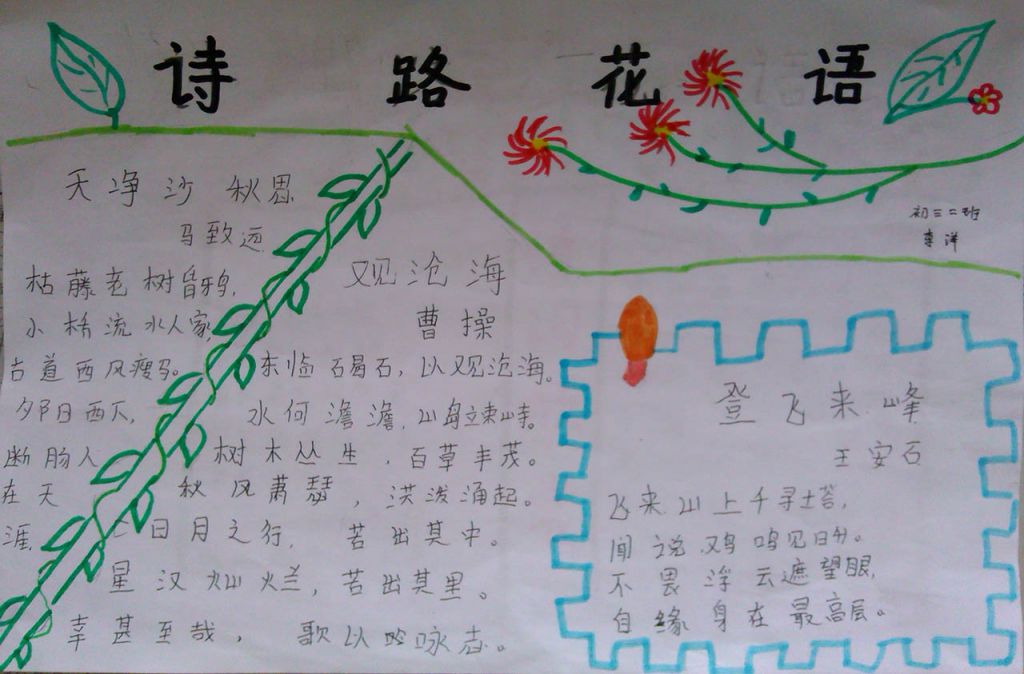 诗路花语
初三二班
李洋
天净沙 秋思
马致远
枯藤老树昏鸦,
小桥流水人家,
古道西风瘦马。
夕阳西下,
断肠人
在天
涯.
观沧海
曹操
东临碣石,以观沧海。
水何澹澹,山岛竦峙。
树木丛生,百草丰茂。
秋风萧瑟,洪波涌起。
日月之行,若出其中。
星汉灿烂,若出其里。
幸甚至哉,歌以咏志。
登飞来峰
王安石
飞来山上千寻塔,
闻说鸡鸣见日升。
不畏浮云遮望眼,
自缘身在最高层。